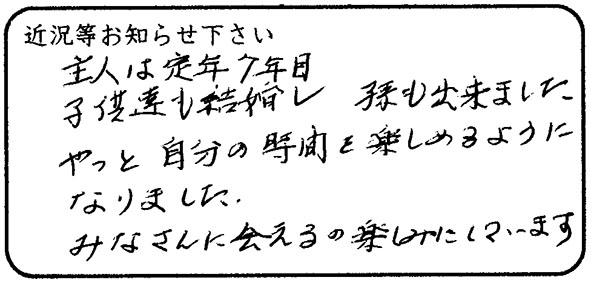 近況等お知らせ下さい
主人は定年7年目
子供達も結婚し 孫も出来ました
やっと自分の時間を楽しめるように
なりました.
みなさんに会えるの楽しみにしています